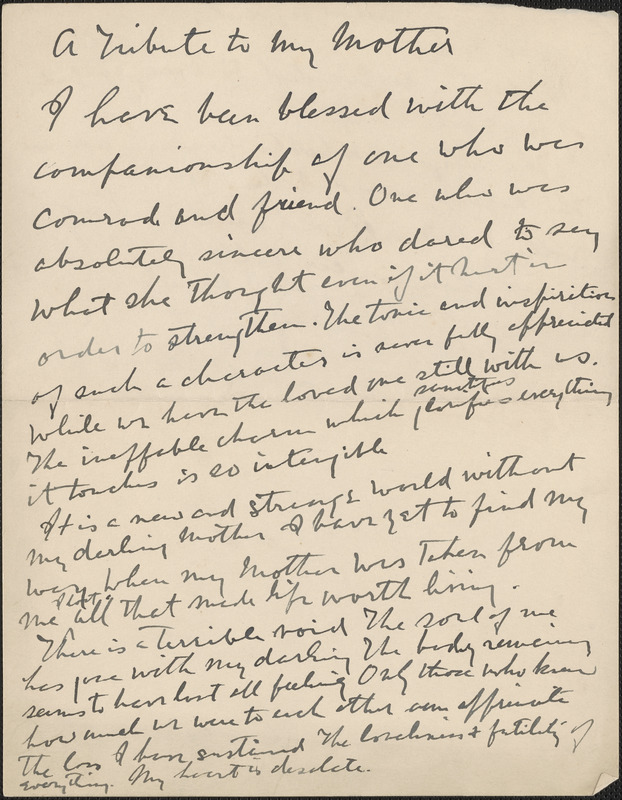 A Tribute to my Mother
I have been blessed with the
companionship of one who was
comrade and friend. One who was
absolutely sincere who dared to say
what she thought even if it hurt in
order to strengthen. The tonic and inspiration
of such a character is never fully appreciated
while we have the loved one still with us.
sanctifies
The ineffable charm which glorifies everything
it touches is so intangible
It is a new and strange world without
my darling Mother I have yet to find my
way, when my Mother was taken from
me all that made life worth living.
There is a terrible void The soul of me
has gone with my darling The body remaining
seems to have lost all feeling Only those who knew
how much we were to each other can appreciate
the loss I have sustained The loneliness & futility of
everything. My heart is desolate.